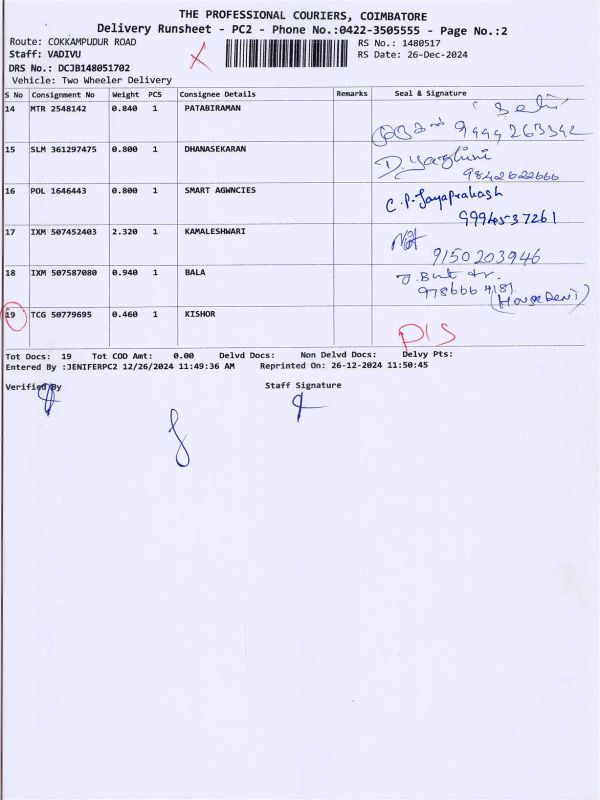 THE PROFESSIONAL COURIERS, COIMBATORE
Delivery Runsheet - PC2 - Phone No.:0422-3505555 - Page No.:2
Route: COKKAMPUDUR ROAD
RS No.: 1480517
Staff: VADIVU
RS Date: 26-Dec-2024
DRS No.: DCJB148051702
Vehicle: Two Wheeler Delivery
S No Consignment No Weight PCS Consignee Details Remarks Seal & Signature
14 MTR 2548142 0.840 1 PATABIRAMAN
9994263342
15 SLM 361297475 0.800 1 DHANASEKARAN
9842622666
16 POL 1646443 0.800 1 SMART AGWNCIES
C.P. Jayaprakash
9994537261
17 IXM 507452403 2.320 1 KAMALESHWARI
9150203946
18 IXM 507587080 0.940 1 BALA
978666 4181
19 TCG 50779695 0.460 1 KISHOR
Tot Docs: 19 Tot COD Amt: 0.00 Delvd Docs: Non Delvd Docs: Delvy Pts:
Entered By :JENIFERPC2 12/26/2024 11:49:36 AM Reprinted On: 26-12-2024 11:50:45
Verified By Staff Signature